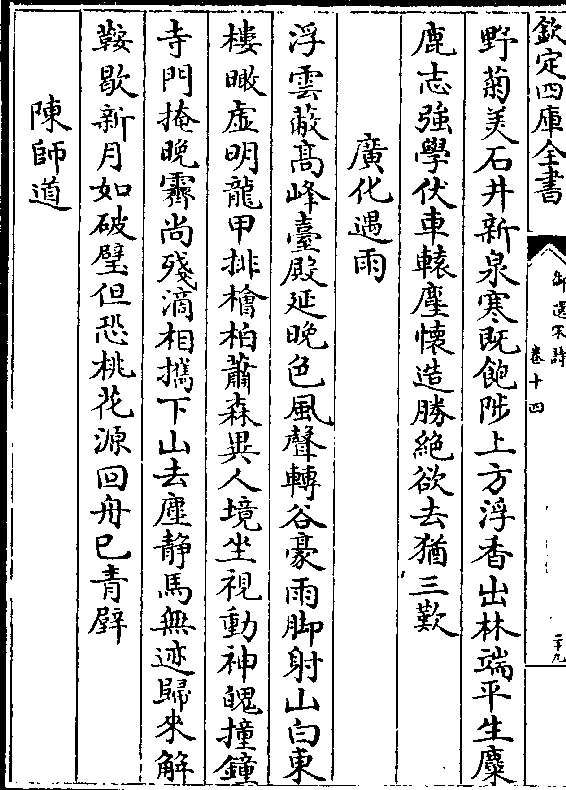 欽定四庫全書
御選宋詩
卷十四
二十九
野菊美石井新泉寒既飽陟上方浮香出林端平生麋
鹿志強學伏車轅塵懷造勝絶欲去猶三歎
廣化遇雨
浮雲蔽髙峰臺殿延晩色風聲轉谷豪雨脚射山白東
樓瞰虚明龍甲排檜柏蕭森異人境坐視動神魄撞鐘
寺門掩晩霽尚殘滴相攜下山去塵静馬無迹歸來解
鞍歇新月如破璧但恐桃花源回舟已青壁
陳師道